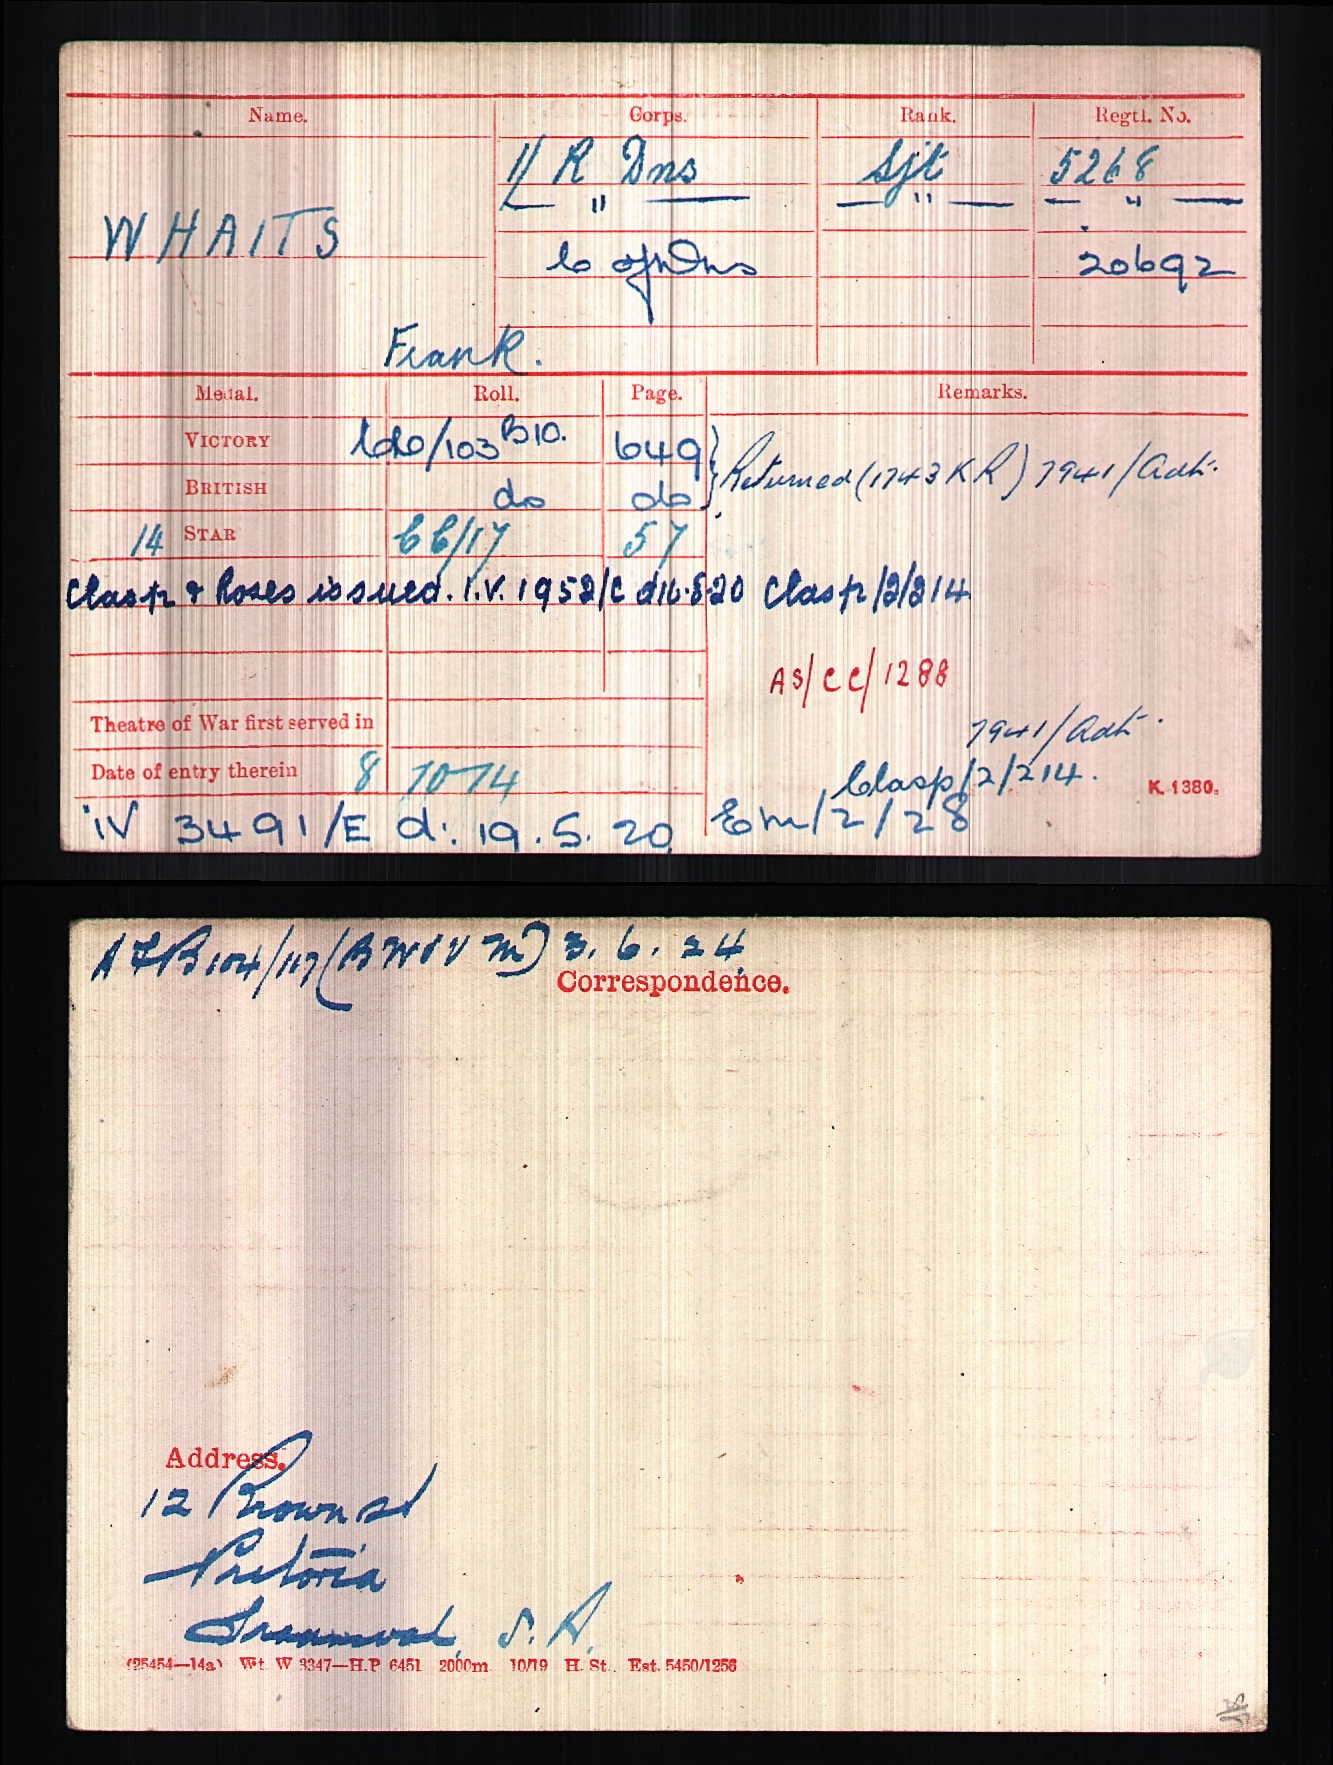 Name. Corps. Rank. Regtl. No.
1/ R Dns Sjt 5268
— " — — " — — " —
WHAITS
C of Dns 20692
Frank.
Medal. Roll. Page. Remarks.
VICTORY /103 B10. 649 } Returned (1743 KR) 7941/Adt.
BRITISH do do
14 STAR CC/17 57
Clasp & Roses issued. I.V. 1952/C d 16.8.20 Clasp/2/214
AS/CC/1288
Theatre of War first served in
7941/Adt.
Date of entry therein 8 10 14
Clasp/2/214. K. 1380.
IV 3491/E d. 19.5.20 Em/2/28
AFB 104/117 (BW & V M) 3.6.24
Correspondence.
Address.
12 Brown St
Pretoria
Transvaal, S.A.
(25454—14a) Wt. W 3347—H.P 6451 2000m 10/19 H. St. Est. 5450/1256